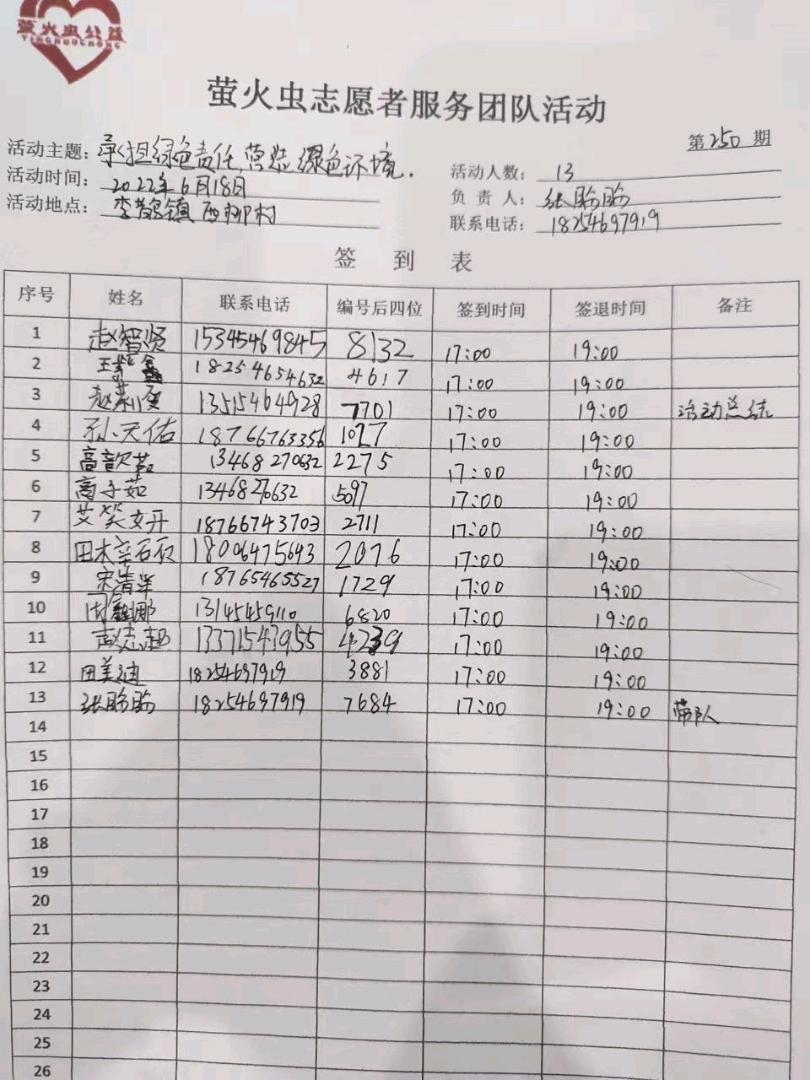 萤火虫公益
YINGHUOCHONG
萤火虫志愿者服务团队活动
第250期
活动主题：承担绿色责任,营造绿色环境.
活动人数：13
活动时间：2022年6月18日
负责人：张盼盼
活动地点：李鹊镇西柳村
联系电话：18254697919
签到表
序号 姓名 联系电话 编号后四位 签到时间 签退时间 备注
1 赵智贤 15345469845 8132 17:00 19:00
2 王紫鑫 18254654632 4617 17:00 19:00
3 13515464928 7701 17:00 19:00 活动总结
4 孙天佑 18766763356 1027 17:00 19:00
5 高歆茹 13468270632 2275 17:00 19:00
6 高子茹 13468270632 5097 17:00 19:00
7 艾笑妍 18766743703 2711 17:00 19:00
8 田梓硕 18006475643 2076 17:00 19:00
9 宋清 18765465527 1729 17:00 19:00
10 13145459110 6820 17:00 19:00
11 赵志超 13371543955 4239 17:00 19:00
12 田美迪 18254697919 3881 17:00 19:00
13 张盼盼 18254697919 7684 17:00 19:00 带队
14
15
16
17
18
19
20
21
22
23
24
25
26